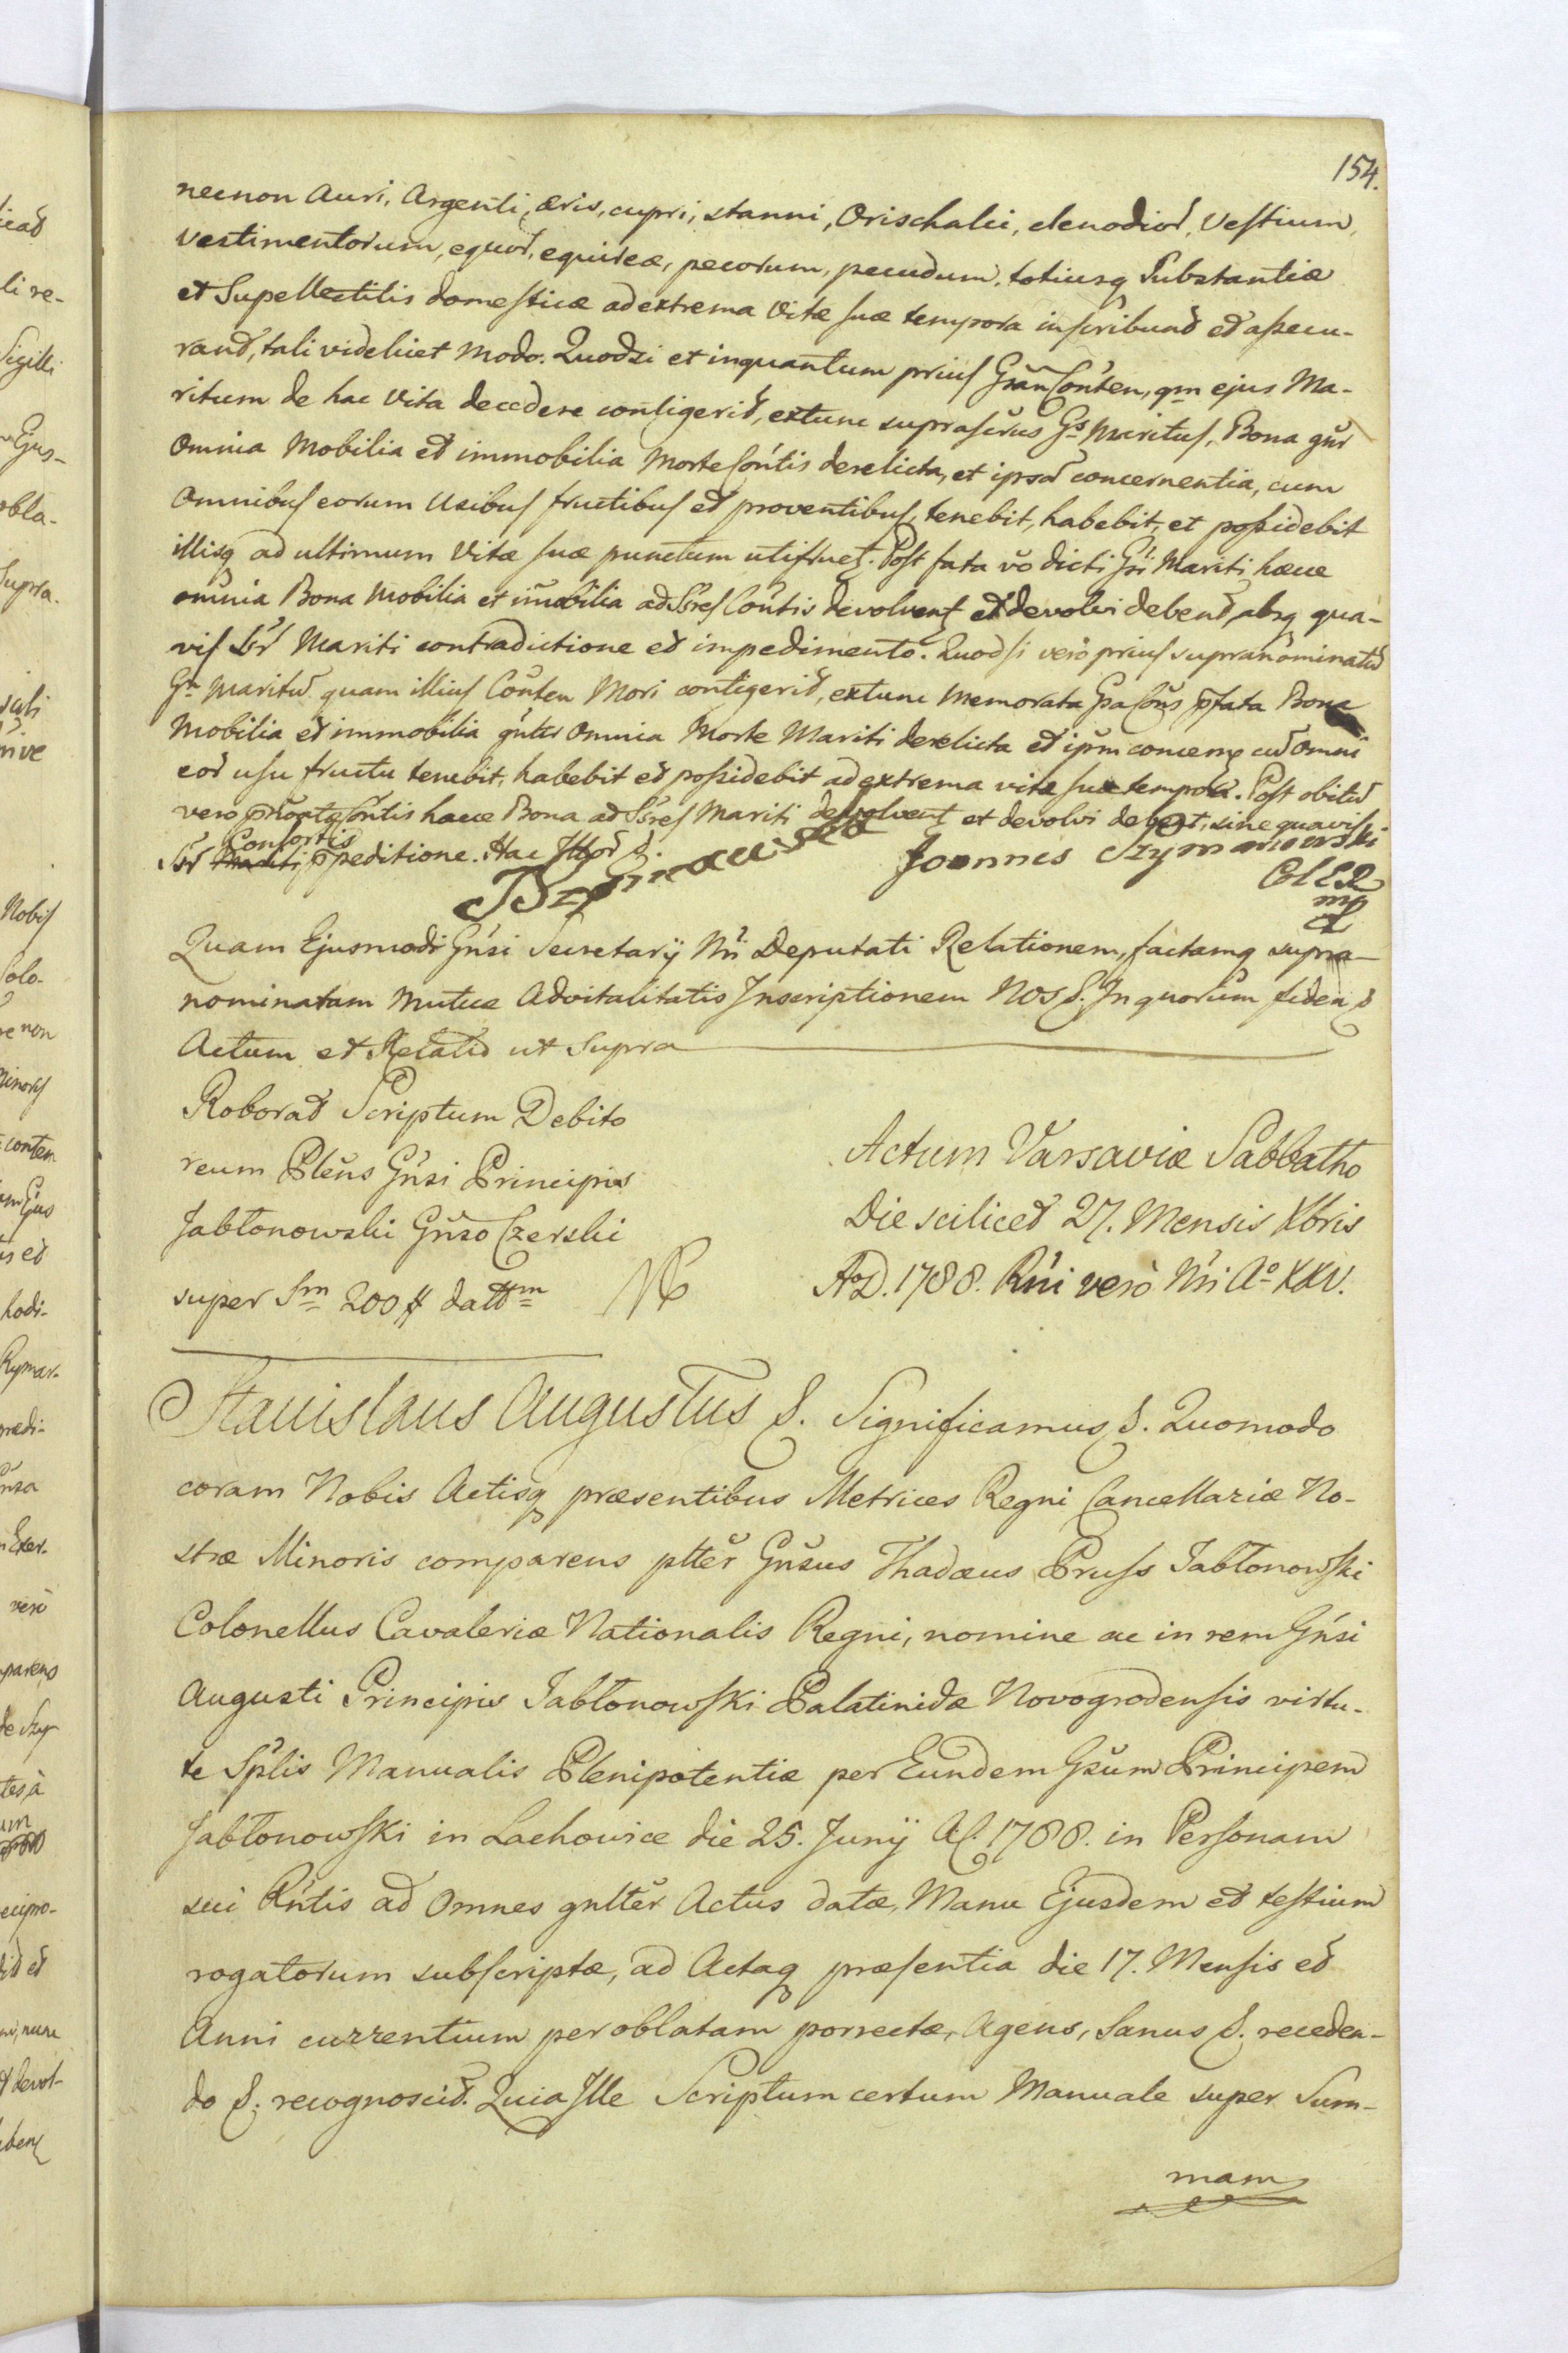 154.
necnon Auri, Argenti, æris, cupri, stanni, Orischalci, clenodior̃, Vestium,
Vestimentorum, equor̃, equireæ, pecorum, pecudum, totiusq Substantiæ
et Supellectilis domesticæ ad extrema Vitæ suæ tempora inscribunt et assecu-
rant, tali videlicet modo. Quodsi et inquantum prius Gsan Cont̃en, qm ejus Ma-
ritum de hac Vita decedere contigerit, extunc suprascrus Gs Maritus, Bona gnr
Omnia Mobilia et immobilia Morte Cont̃is derelicta, et ipsar̃ concernentia, cum
Omnibus eorum Usibus fructibus et proventibus, tenebit, habebit, et possidebit
illisq ad ultimum Vitæ suæ punctum utifruet. Post fata vo dicti Gsi Mariti hæcce
omnia Bona Mobilia et im̃obilia ad Ssres Contis devolvent et devolvi debent, absq qua-
vis Ssr Mariti contradictione et impedimento. Quodsi vero prius supranominatũ
Gm Maritũ quam illius Conten Mori contigerit, extunc Memorata Gsa Cons p̃fata Bona
Mobilia et immobilia gnter Omnia Morte Mariti derelicta et ipsm concerne cũ Omni
eor̃ usu fructu tenebit, habebit et possidebit ad extrema vitæ suæ tempora. Post obitũ
vero Contis hæcce Bona ad Ssres Mariti devolvent et devolvi debent, sine quavis
Consortis
Ssr Mariti p̃peditione. Hac Ittor̃ &.
Joannes Szymanowski
Quam Ejusmodi Gnsi Secretarij Nri Deputati Relationem, factamq supra-
nominatam Mutuæ Advitalitatis Inscriptionem Nos &. In quorum fidem &
Actum et Relatio ut Supra
Roborat Scriptum Debito
reum Plens Gnsi Principis
Jabłonowski Gnso Czerski
super Sm 200 # dattm
Actum Varsaviæ Sabbatho
Die scilicet 27. Mensis Xbris
A.D. 1788. Rni vero Nri Ao XXV.
Stanislaus Augustus &. Significamus &. Quomodo
coram Nobis Actisq præsentibus Metrices Regni Cancellariæ No-
stræ Minoris comparens pltter Gnsus Thadæus Pruss Jabłonowski
Colonellus Cavaleriæ Nationalis Regni, nomine ac in rem Gnsi
Augusti Principis Jabłonowski Palatinidæ Novogrodensis virtu-
te Splis Manualis Plenipotentiæ per Eundem Gsum Principem
Jabłonowski in Lachowice die 25. Junij A. 1788. in Personam
sui Rntis ad Omnes gnltter Actus datæ, Manu Ejusdem et testium
rogatorum subscriptæ, ad Actaq præsentia die 17. Mensis et
Anni currentium per oblatam porrectæ, Agens, Sanus &. receden-
do &. recognoscit. Quia Ille Scriptum certum Manuale super Sum-
mam